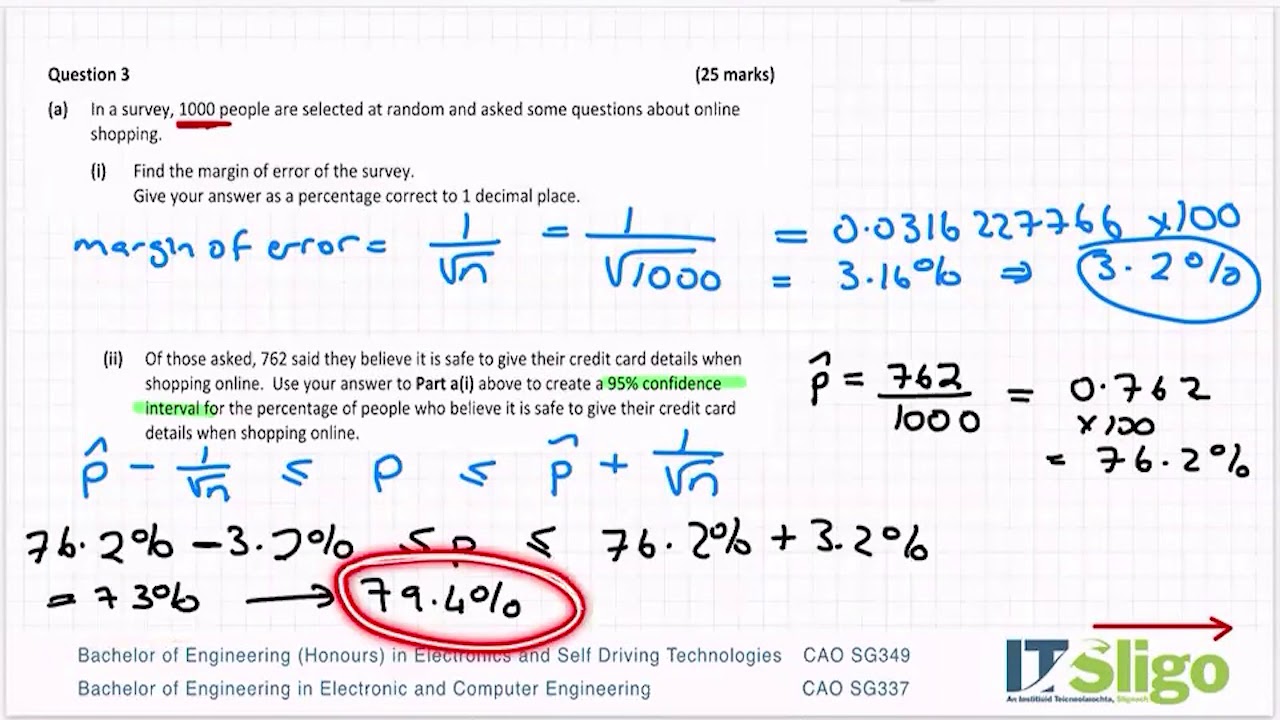 Question 3 (25 marks)
(a) In a survey, 1000 people are selected at random and asked some questions about online
shopping.
(i) Find the margin of error of the survey.
Give your answer as a percentage correct to 1 decimal place.
margin of error = 1/√n = 1/√1000 = 0.0316227766 ×100
= 3.16% ⇒ 3.2%
(ii) Of those asked, 762 said they believe it is safe to give their credit card details when
shopping online. Use your answer to Part a(i) above to create a 95% confidence
interval for the percentage of people who believe it is safe to give their credit card
details when shopping online.
p̂ = 762/1000 = 0.762
×100
= 76.2%
p̂ − 1/√n ≤ p ≤ p̂ + 1/√n
76.2% − 3.2% ≤ p ≤ 76.2% + 3.2%
= 73% → 79.4%
Bachelor of Engineering (Honours) in Electronics and Self Driving Technologies CAO SG349
Bachelor of Engineering in Electronic and Computer Engineering CAO SG337
IT Sligo
An Institiúid Teicneolaíochta, Sligeach